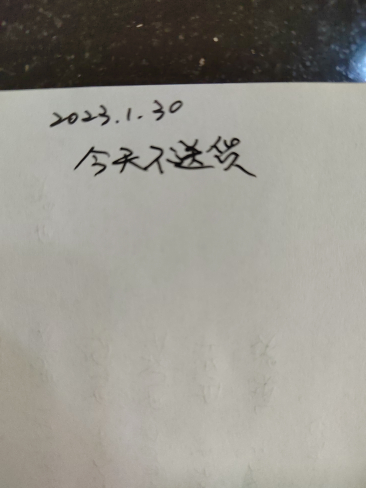 2023.1.30
今天不送货